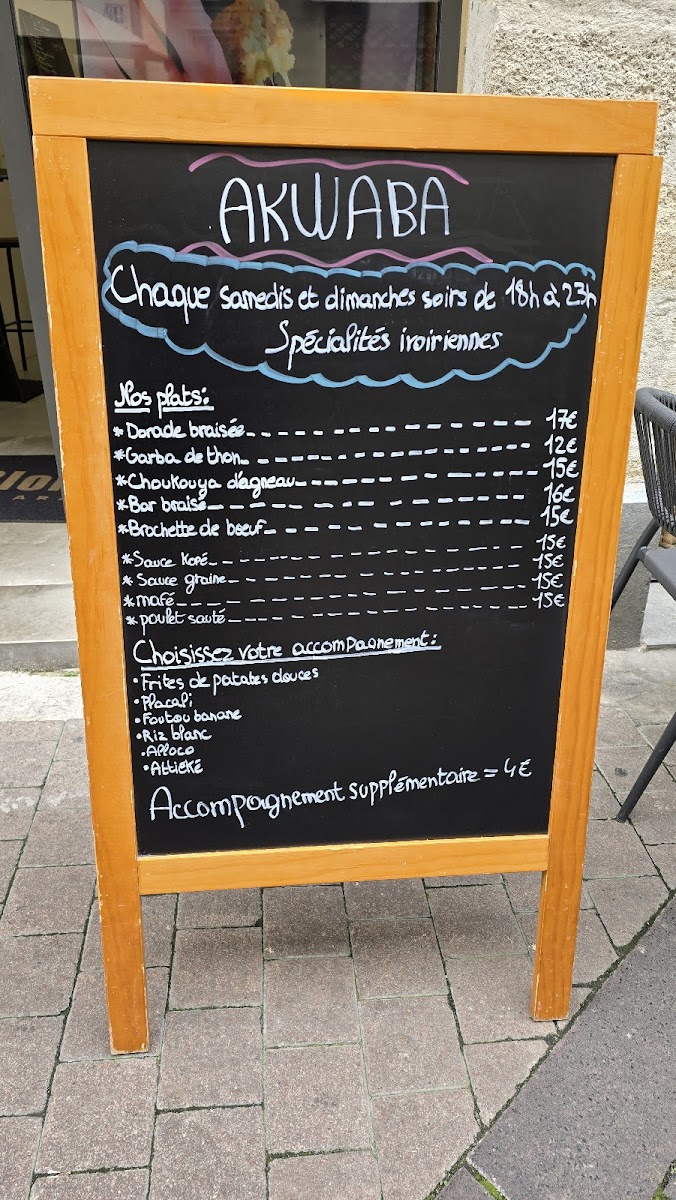 AKWABA
Chaque samedis et dimanches soirs de 18h à 23h
Spécialités ivoiriennes
Nos plats:
*Dorade braisée 17€
*Garba de thon 12€
*Choukouya d'agneau 15€
*Bar braisé 16€
*Brochette de bœuf 15€
*Sauce Kopé 15€
*Sauce graine 15€
*mafé 15€
*poulet sauté 15€
Choisissez votre accompagnement:
•Frites de patates douces
•Placali
•Foutou banane
•Riz blanc
•Alloco
•Attieké
Accompagnement supplémentaire = 4€